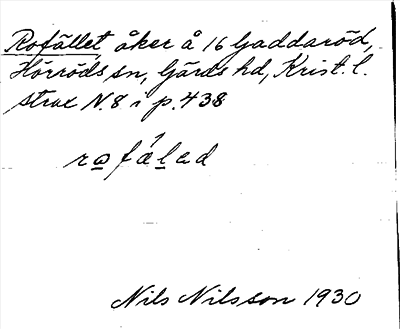 Rofället, åker å 16 Gaddaröd,
Hörröds sn, Gärds hd, Krist. l.
strax N. 8 i p. 438
rofä́lad
Nils Nilsson 1930